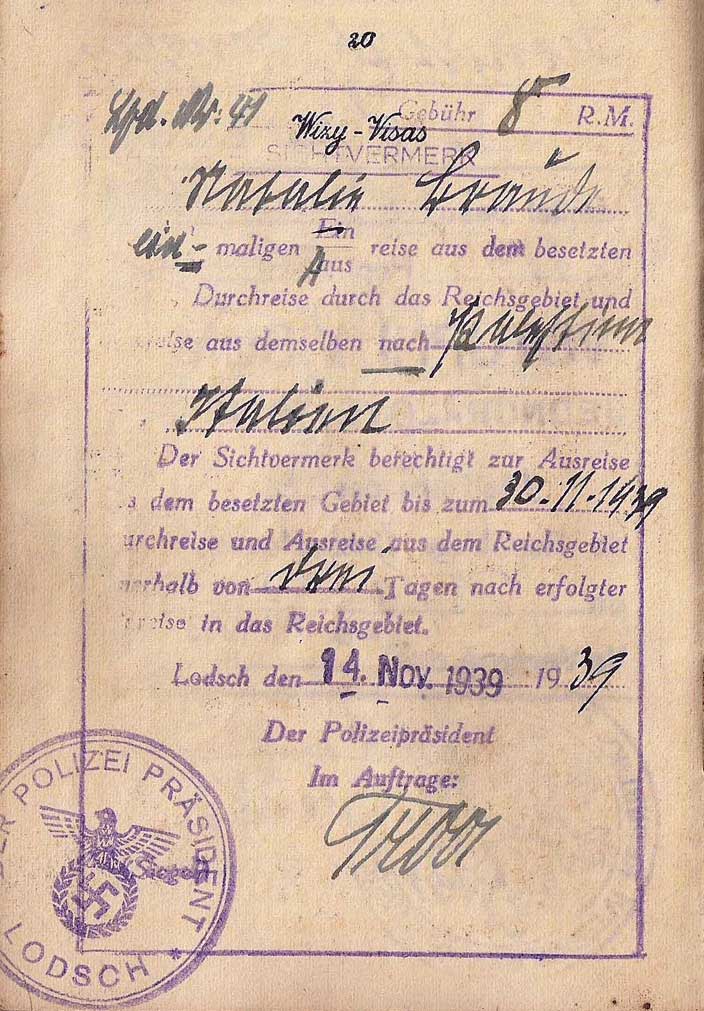 20
Lfd. Nr: 41
Gebühr 8 R.M.
Wizy-Visas
SICHTVERMERK
Natalie Braude
ein- maligen Ein reise aus dem besetzten
Aus
Durchreise durch das Reichsgebiet und
reise aus demselben nach Palästina
Italien
Der Sichtvermerk berechtigt zur Ausreise
s dem besetzten Gebiet bis zum 30.11.1939
urchreise und Ausreise aus dem Reichsgebiet
nerhalb von drei Tagen nach erfolgter
reise in das Reichsgebiet.
Lodsch den 14. Nov. 1939 19 39
Der Polizeipräsident
Im Auftrage:
DER POLIZEI PRÄSIDENT
(Siegel)
LODSCH *